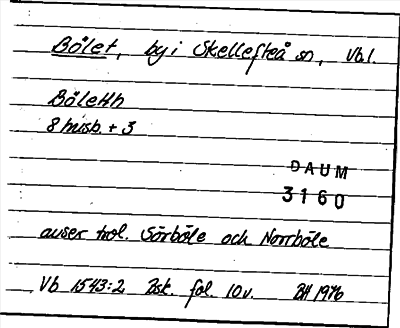 Bölet, by i Skellefteå sn, Vbl.
Böletth
8 misb. + 3
DAUM
3160
avser trol. Sörböle och Norrböle
Vb 1543:2 Bsk. fol. 10v. BH 1976